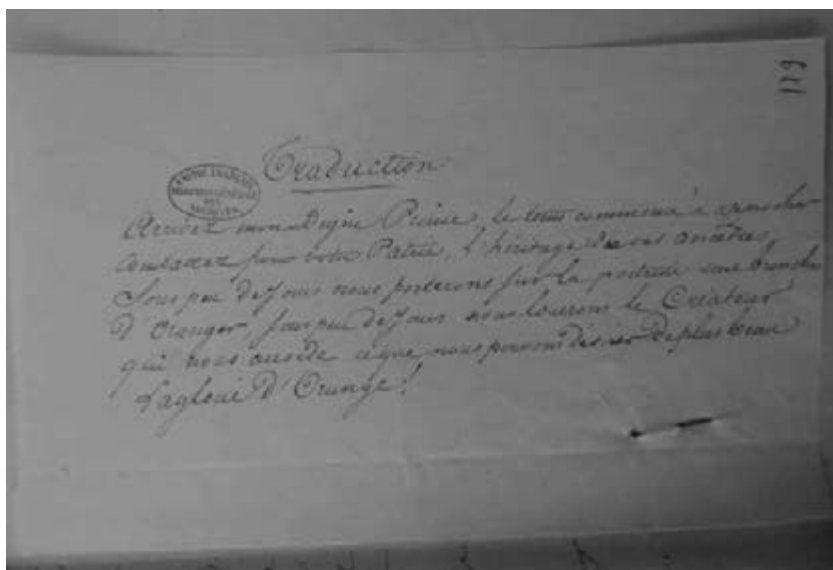 119
Traduction
EMPIRE FRANÇAIS
DES
ARCHIVES
Arrivez mon Digne Prince, le tems commence à approcher
Combattez pour votre Patrie, l'héritage de vos ancêtres,
Sous peu de Jours nous porterons sur la poitrine une branche
D'Oranger, sous peu de Jours nous louerons le Créateur
qui nous accorde ce que nous pouvons désirer de plus beau
La gloire D'Orange!